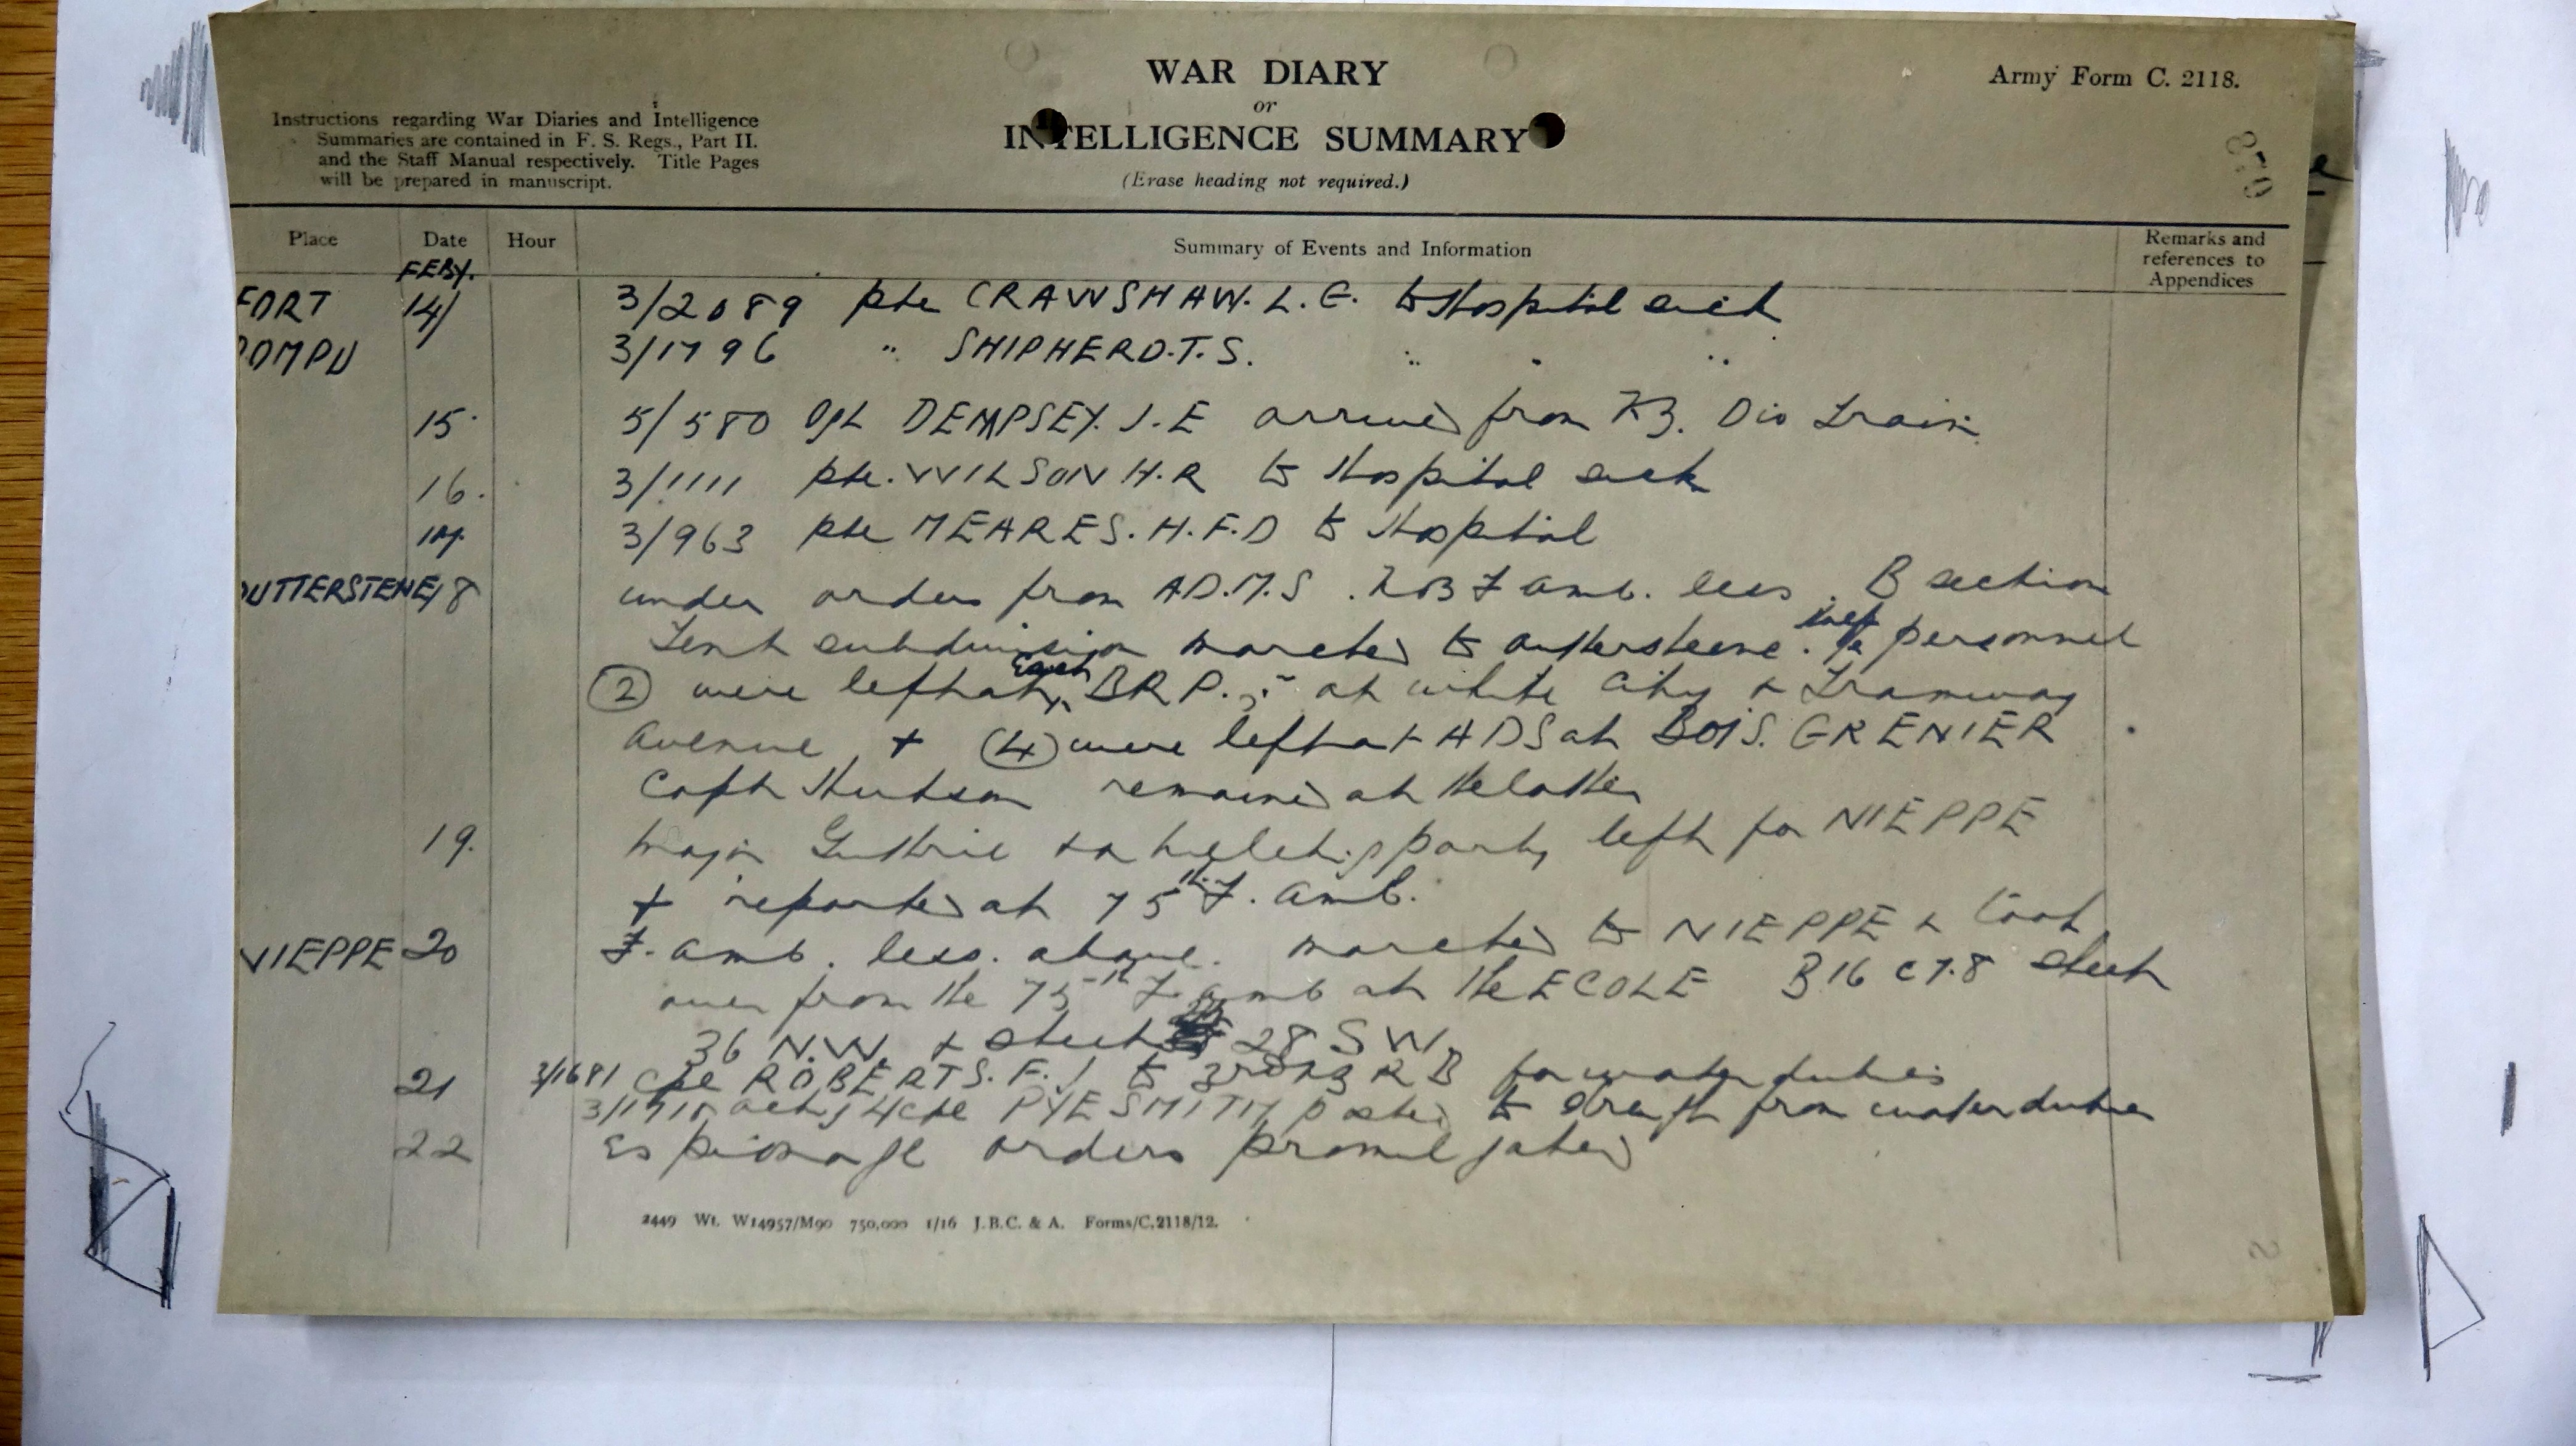 WAR DIARY
or
INTELLIGENCE SUMMARY
(Erase heading not required.)
Army Form C. 2118.
Instructions regarding War Diaries and Intelligence
Summaries are contained in F. S. Regs., Part II.
and the Staff Manual respectively. Title Pages
will be prepared in manuscript.
870
Place Date Hour Summary of Events and Information Remarks and references to Appendices
FEBY.
FORT 14/ 3/2089 pte CRAWSHAW. L. G. to Hospital sick
ROMPU 3/1796 " SHIPHERD. T. S. " " "
15. 5/580 Dpl DEMPSEY. J. E arrived from NZ. Div Train
16. 3/1111 pte. WILSON H. R to Hospital sick
17. 3/963 pte MEARES. H. F. D to Hospital
OUTTERSTENE 18 under orders from A.D.M.S. No 3 F amb. less. B section
Tent subdivision marched to outtersteene. personnel
(2) were left at Each B R P. at white City & Tramway
Avenue + (4) were left at ADS at BOIS. GRENIER
Capt Hudson remained at the latter
19. Major Guthrie & a party left for NIEPPE
+ reported at 75th F. amb.
NIEPPE 20 F. amb. less. above. marched to NIEPPE & took
over from the 75th F. amb at the ECOLE B 16 c 7.8 sheet
36 N.W. + sheet 28 S W.
21 3/1681 Cpl ROBERTS. F. J to 3rd NZ R B for water duties
3/1715 actg L/Cpl PYE SMITH posted to from water duties
22 Espionage orders promulgated
2449 Wt. W14957/M90 750,000 1/16 J.B.C. & A. Forms/C.2118/12.